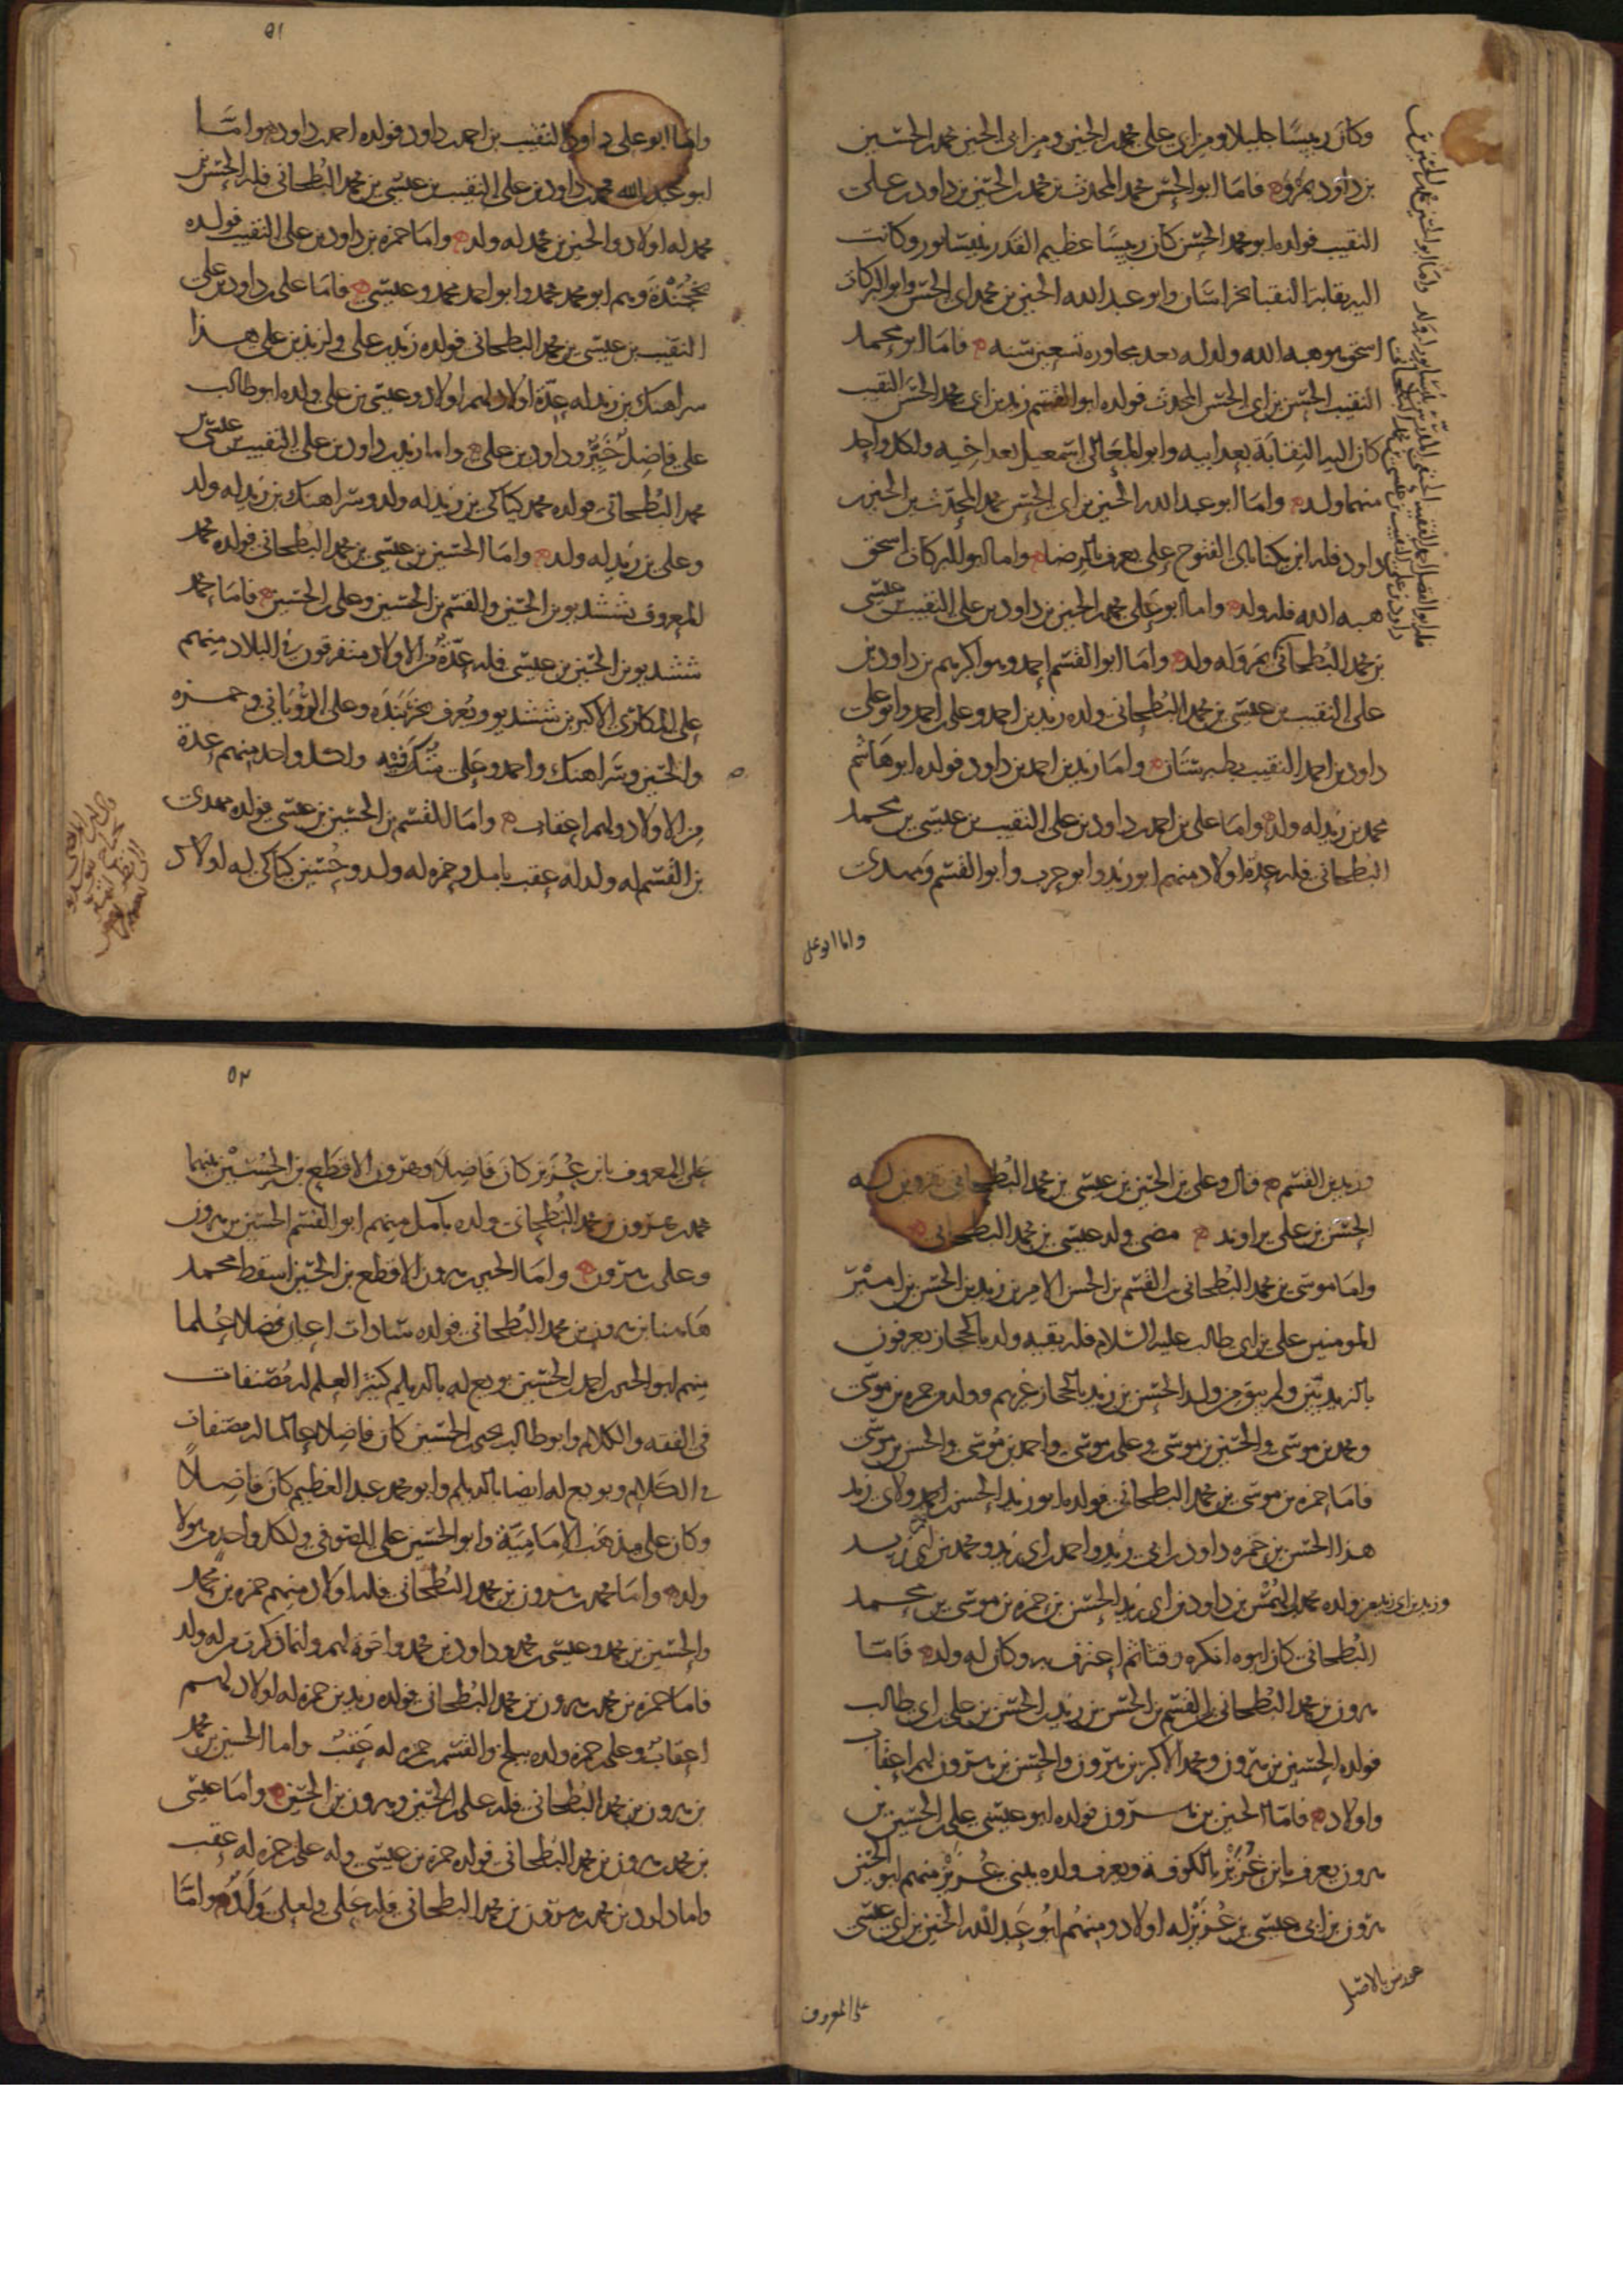 وكان رييسا جليلا ومن ابي علي محمد بن الحسين ومن ابي الحسن محمد بن الحسين
بن داود بمرو فاما ابو الحسن محمد المحدث بن محمد بن الحسين بن داود بن علي
النقيب فولده ابو محمد الحسن كان رييسا عظيم القدر بنيسابور وكانت
اليه نقابة النقبا بخراسان وابو عبد الله الحسين بن محمد ابي الحسن وابو البركات
اسحق هو هبه الله ولد له بعد مجاوزه تسعين سنه فاما ابو محمد
النقيب الحسن بن ابي الحسن المحدث فولده ابو القسم زيد بن ابي محمد الحسن النقيب
كان اليه النقابة بعد ابيه وابو المعالي اسمعيل بعد اخيه ولكل واحد
منهما ولد واما ابو عبد الله الحسين بن ابي الحسن محمد المحدث بن الحسين بن
داود فله ابن يكنا بابي الفتوح علي يعرف بالرضا واما ابو البركات اسحق
هبه الله فله ولد واما ابو علي محمد بن الحسين بن داود بن علي النقيب بن عيسى
بن محمد البطحاني بمرو له ولد واما ابو القسم احمد وهو اكبرهم بن داود بن
علي النقيب بن عيسى بن محمد البطحاني ولده زيد بن احمد وعلي بن احمد وابو علي
داود بن احمد النقيب بطبرستان واما زيد بن احمد بن داود فولده ابو هاشم
محمد بن زيد له ولد واما علي بن احمد بن داود بن علي النقيب بن عيسى بن محمد
البطحاني فله عدة اولاد منهم ابو زيد وابو حرب وابو القسم ومهدي
واما ابو علي
٥١
واما ابو علي داود النقيب بن احمد بن داود فولده احمد بن داود واما
ابو عبد الله محمد بن داود بن علي النقيب بن عيسى بن محمد البطحاني فله الحسن بن
محمد له اولاد والحسين بن محمد له ولد واما حمزه بن داود بن علي النقيب فولده
بخجندة وهم ابو محمد محمد وابو احمد محمد وعيسى فاما علي بن داود بن علي
النقيب بن عيسى بن محمد البطحاني فولده زيد بن علي ولزيد بن علي هذا
سراهنك بن زيد له عدة اولاد لهم اولاد وعيسى بن علي ولده ابو طالب
علي فاضل خير وداود بن علي واما زيد بن داود بن علي النقيب بن عيسى بن
محمد البطحاني فولده محمد كياكي بن زيد له ولد وسراهنك بن زيد له ولد
وعلي بن زيد له ولد واما الحسين بن عيسى بن محمد البطحاني فولده محمد
المعروف بششديو بن الحسين والقسم بن الحسين وعلي بن الحسين فاما محمد
ششديو بن الحسين بن عيسى فله عدة من الاولاد متفرقون في البلاد منهم
علي المكارى الاكبر بن ششديو ويعرف بخربنده وعلي الروياني وحمزه
والحسين وسراهنك واحمد وعلي ولكل واحد منهم عدة
من الاولاد ولهم اعقاب واما القسم بن الحسين بن عيسى فولده مهدي
بن القسم له ولد له عقب بامل وحمزه له ولد وحسين كياكي له اولاد
وزيد بن القسم قال وعلي بن الحسين بن عيسى بن محمد البطحاني بقزوين له
الحسن بن علي براوند مضى ولد عيسى بن محمد البطحاني
واما موسى بن محمد البطحاني بن القسم بن الحسن الامير بن زيد بن الحسن بن امير
المومنين علي بن ابي طالب عليه السلام فله بقيه ولد بالحجاز يعرفون
بالزيديين ولم يبق من ولد الحسن بن زيد بالحجاز غيرهم وولده حمزه بن موسى
ومحمد بن موسى والحسين بن موسى وعلي بن موسى واحمد بن موسى والحسن بن موسى
فاما حمزه بن موسى بن محمد البطحاني فولده ابو زيد الحسن بن حمزه ولابي زيد
هذا الحسن بن حمزه داود بن ابي زيد واحمد بن ابي زيد ومحمد بن ابي زيد
وزيد بن ابي زيد فمن ولده محمد بن داود بن ابي زيد الحسن بن حمزه بن موسى بن محمد
البطحاني كان ابوه انكره وقتا ثم اعترف به وكان له ولد فاما
هرون بن محمد البطحاني بن القسم بن الحسن بن زيد بن الحسن بن علي بن ابي طالب
فولده الحسين بن هرون ومحمد الاكبر بن هرون والحسن بن هرون لهم اعقاب
واولاد فاما الحسين بن هرون فولده ابو عيسى علي بن الحسين بن
هرون يعرف بابن عزيز بالكوفة ويعرف ولده ببني عزيز منهم ابو الحسين
هرون بن ابي عيسى بن عزيز له اولاد ومنهم ابو عبد الله الحسين بن ابي عيسى
علي المعروف
٥٢
علي المعروف بابن عزيز كان فاضلا وهرون الاقطع بن الحسين بينهما
محمد بن هرون بن محمد البطحاني ولده بآمل منهم ابو القسم الحسين بن هرون
وعلي بن هرون واما الحسين بن هرون الاقطع بن الحسين اسقط محمد
هاهنا بن هرون بن محمد البطحاني فولده سادات اعيان فضلا علما
منهم ابو الحسين احمد بن الحسين بويع له بالديلم كثير العلم له مصنفات
في الفقه والكلام وابو طالب يحيى بن الحسين كان فاضلا عالما له مصنفات
في الكلام وبويع له ايضا بالديلم وابو محمد عبد العظيم كان فاضلا
وكان على مذهب الامامية وابو الحسين علي المتوفى ولكل واحد من هولا
ولد واما محمد بن هرون بن محمد البطحاني فله اولاد منهم حمزه بن محمد
والحسين بن محمد وعيسى بن محمد وداود بن محمد واخوة لهم وانما ذكرت من له ولد
فاما حمزه بن محمد بن هرون بن محمد البطحاني فولده زيد بن حمزه له اولاد لهم
اعقاب وعلي بن حمزه ولده ببلخ والقسم بن حمزه له عقب واما الحسين بن محمد
بن هرون بن محمد البطحاني فله علي بن الحسين وهرون بن الحسين واما عيسى
بن محمد بن هرون بن محمد البطحاني فولده حمزه بن عيسى وله علي بن حمزه له عقب
واما داود بن محمد بن هرون بن محمد البطحاني فله علي ولعلي ولد واما